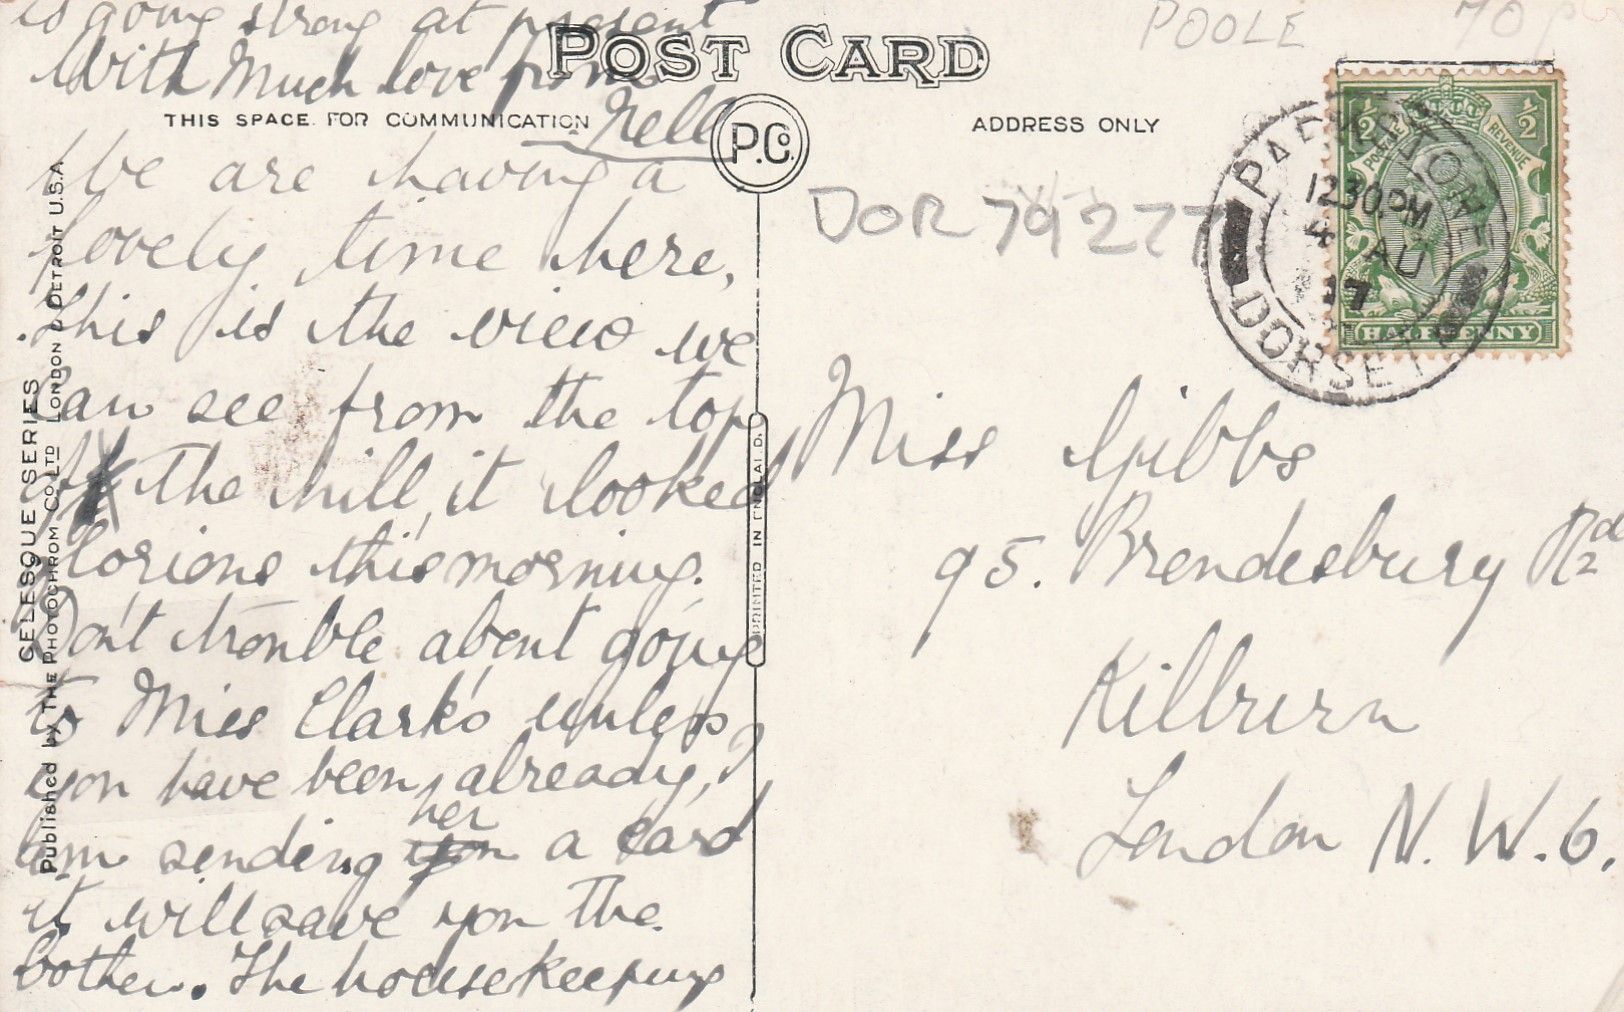 is going strong at present
With Much love from
Nell
POST CARD
THIS SPACE FOR COMMUNICATION
P.Co.
ADDRESS ONLY
POOLE
70p
We are having a
lovely time here,
This is the view we
Can see from the top
of the hill, it looked
Glorious this morning.
Don't trouble about going
to Miss Clark's unless
you have been already, I
am sending her you a card
it will save you the
bother. The housekeeping
CELESQUE SERIES
Published by THE PHOTOCHROM CO LTD LONDON & DETROIT U.S.A.
PRINTED IN ENGLAND.
DOR 79277
PARKSTONE
12 30 PM
4 AU
17
DORSET
1/2
1/2
POSTAGE
REVENUE
HALFPENNY
Miss Gibbs
95. Brendesbury Rd
Kilburn
London N.W.6.